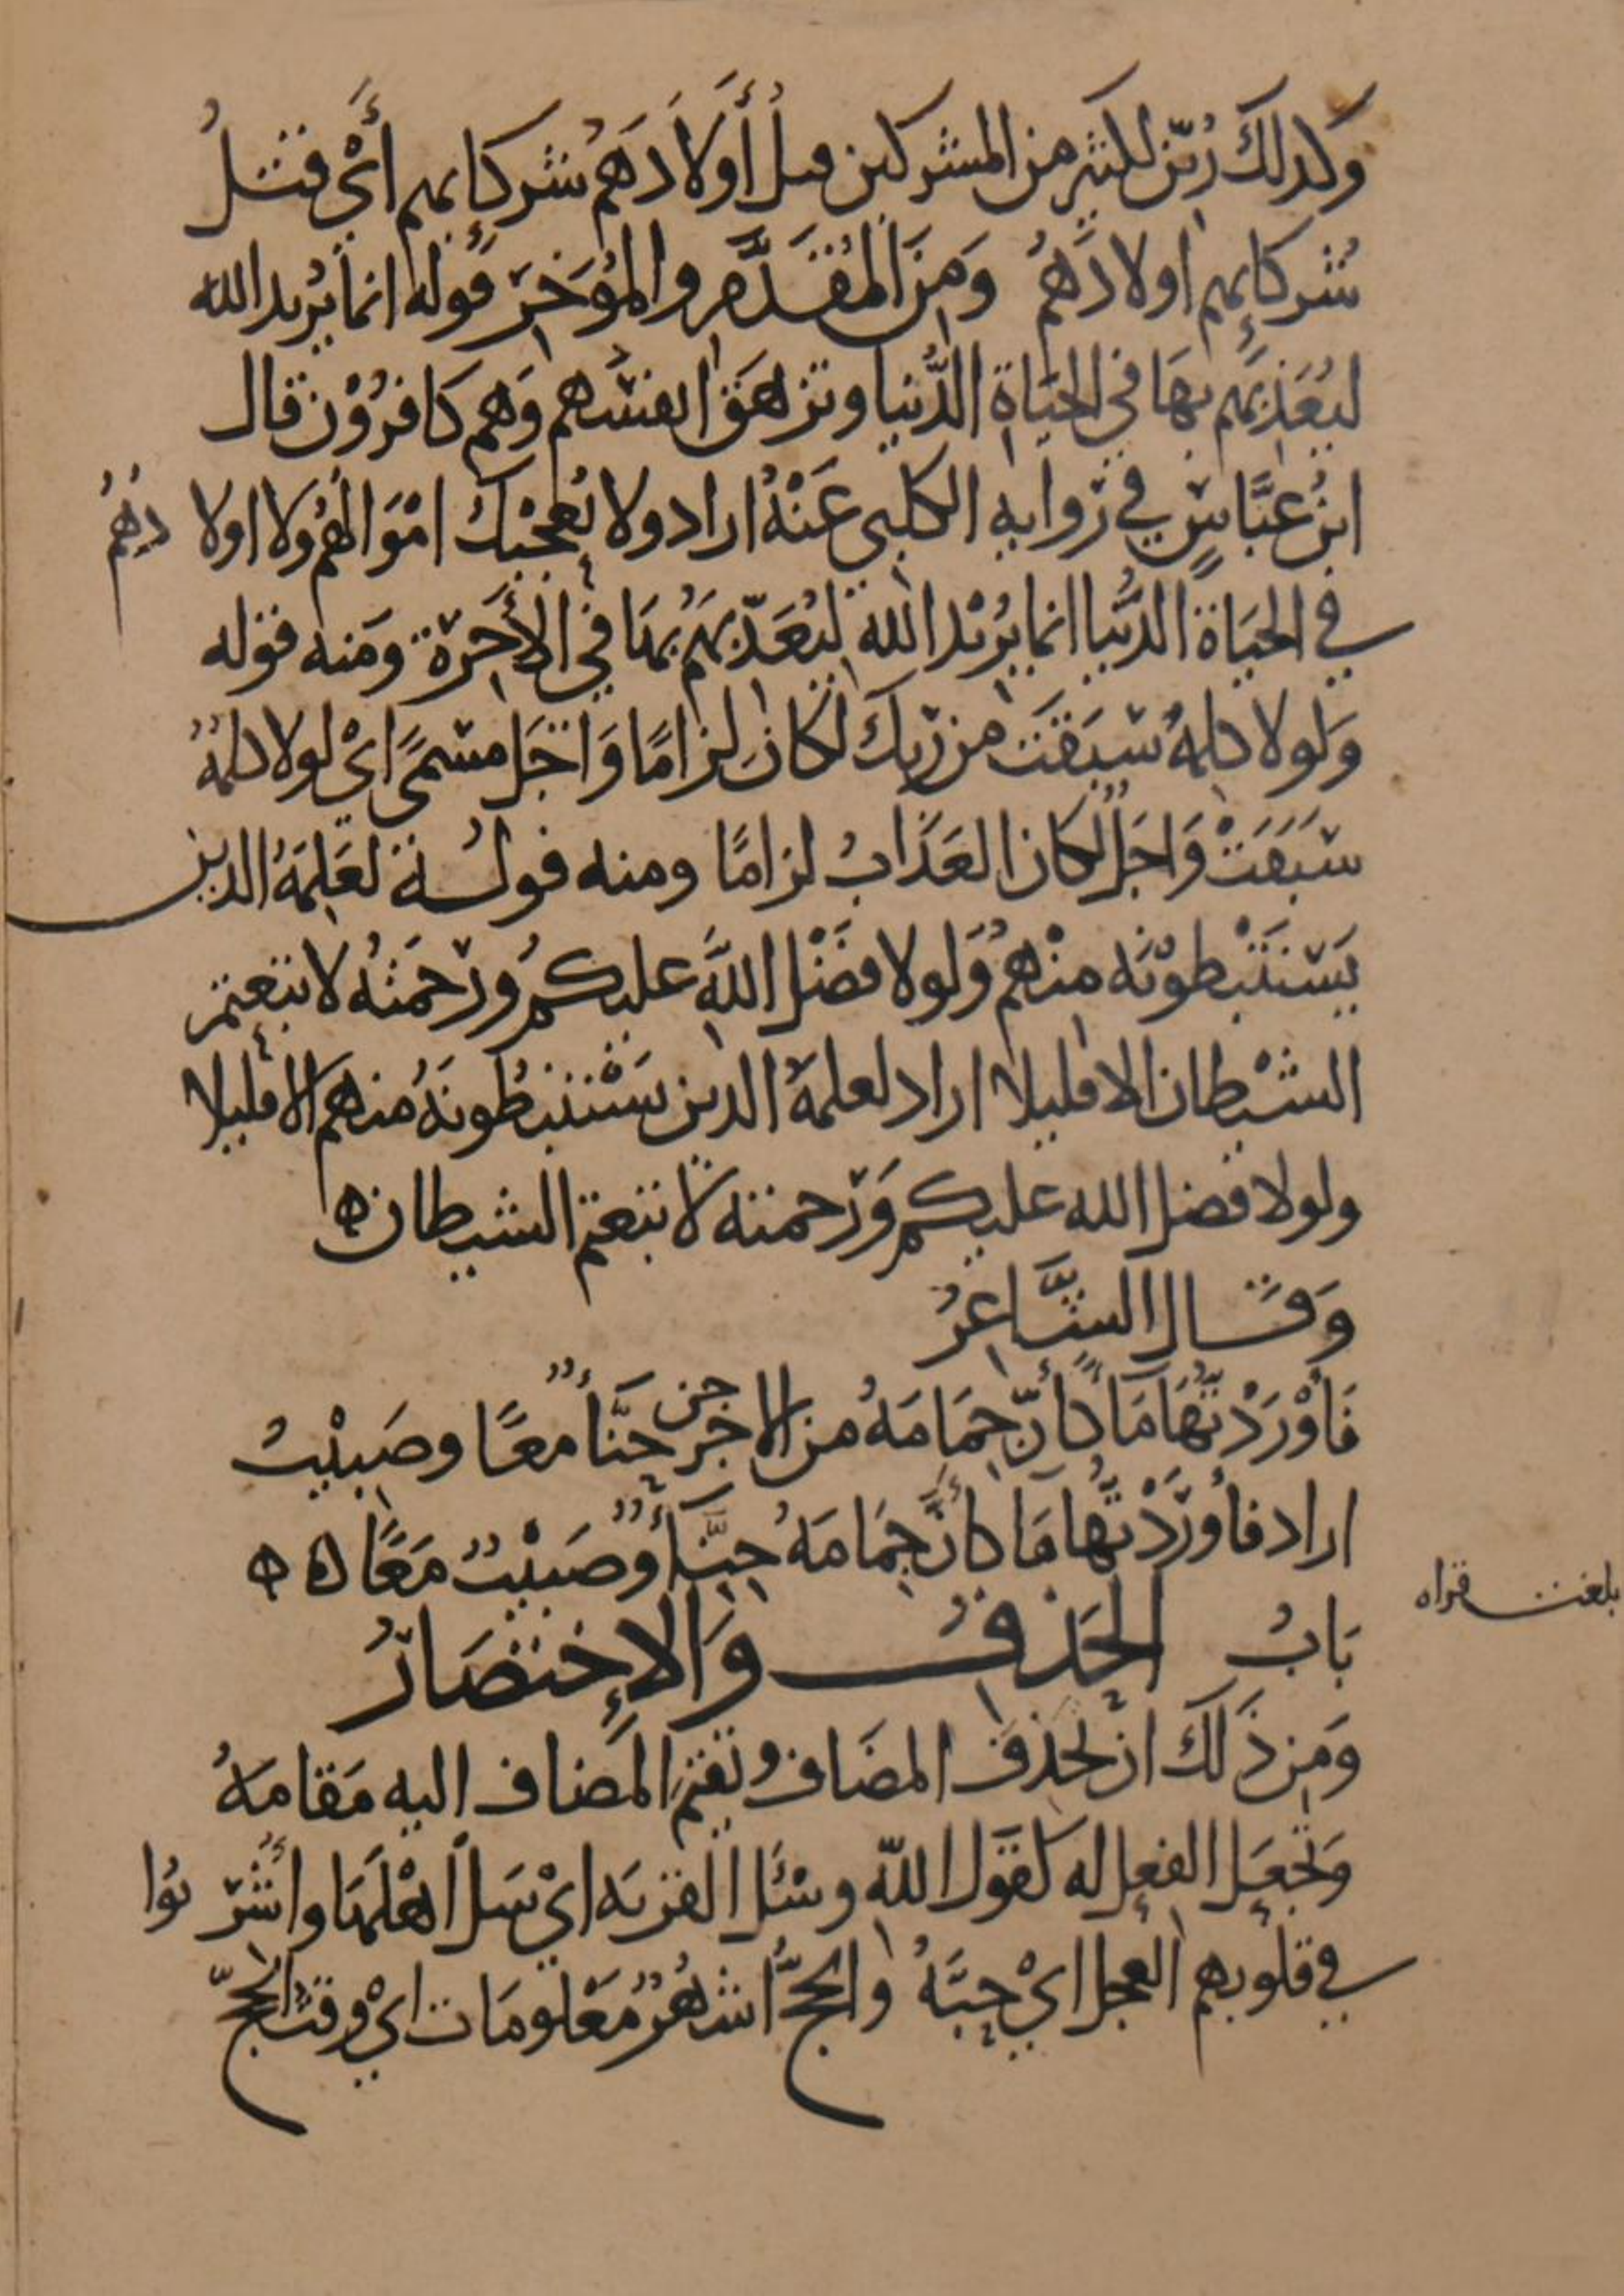 وكذلك زُيّن لكثيرٍ من المشركين قتل أَوْلادَهُم شركايهم أَيْ قتلُ
شُركايِهم اولادَهُم وَمِنَ المُقَدَّمِ والمُؤَخَّرِ قَوله انما يُريد الله
ليُعَذِّبَهم بِهَا في الحيَاةِ الدُّنيا وتزهَقَ انفسُهم وَهم كَافرُوْن قال
ابنُ عبَّاسٍ في رواية الكلبي عَنْهُ اراد ولا تُعجبْك امْوَالهُم ولا اولادهُم
في الحيَاة الدُّنيا انما يُرْيد الله لِيُعَذّبَهُم بهَا في الأخِرَة ومَنه قوله
وَلولا كلمةٌ سَبَقَت من رَبك لكانَ لِزامًا وَاجَل مسَمىً اىْ لولا كلمةٌ
سَبَقَتْ وَاجَلٌ لكان العَذَابُ لزامًا ومنه قولُه لَعَلِمَهُ الذين
يَسْتنبْطوْنَه منْهمُ وَلولا فَضْل اللهِ عليكمُ ورَحمَتُه لاتبَعتمُ
الشيْطان الا قليلا اراد لعلمهُ الذين يَسْتنبطُونَهُ منهم الا قليلا
ولولا فضل الله عليكم وَرَحمته لاتبعتم الشيطان ه
وَقَال الشَّاعِرُ
فَأَوْرَدْتُهَا مَاءً كأنّ جِمَامَهُ من الاجن حِنَّاءٌ معًا وصَبيْبُ
اراد فأورَدْتُها مَاءً كانَّ جِمَامَهُ حِنَّاءٌ وَصَبيْبٌ مَعًا ه ه
بَابُ الحَذفِ وَالإِختصَارُ
وَمِن ذَلك ان تحذفَ المضَاف وتقيم المُضاف اليه مَقامَهُ
وَتجعَل الفعل له كقول الله وسْئَل القريَه اىْ سَل اهْلَهَا واُشْربُوا
في قلوبهم العجل ايْ حبَّهُ والحجُّ اشهُرٌ مَعْلومَات ايْ وقتُ الحجّ
بلغت قراه